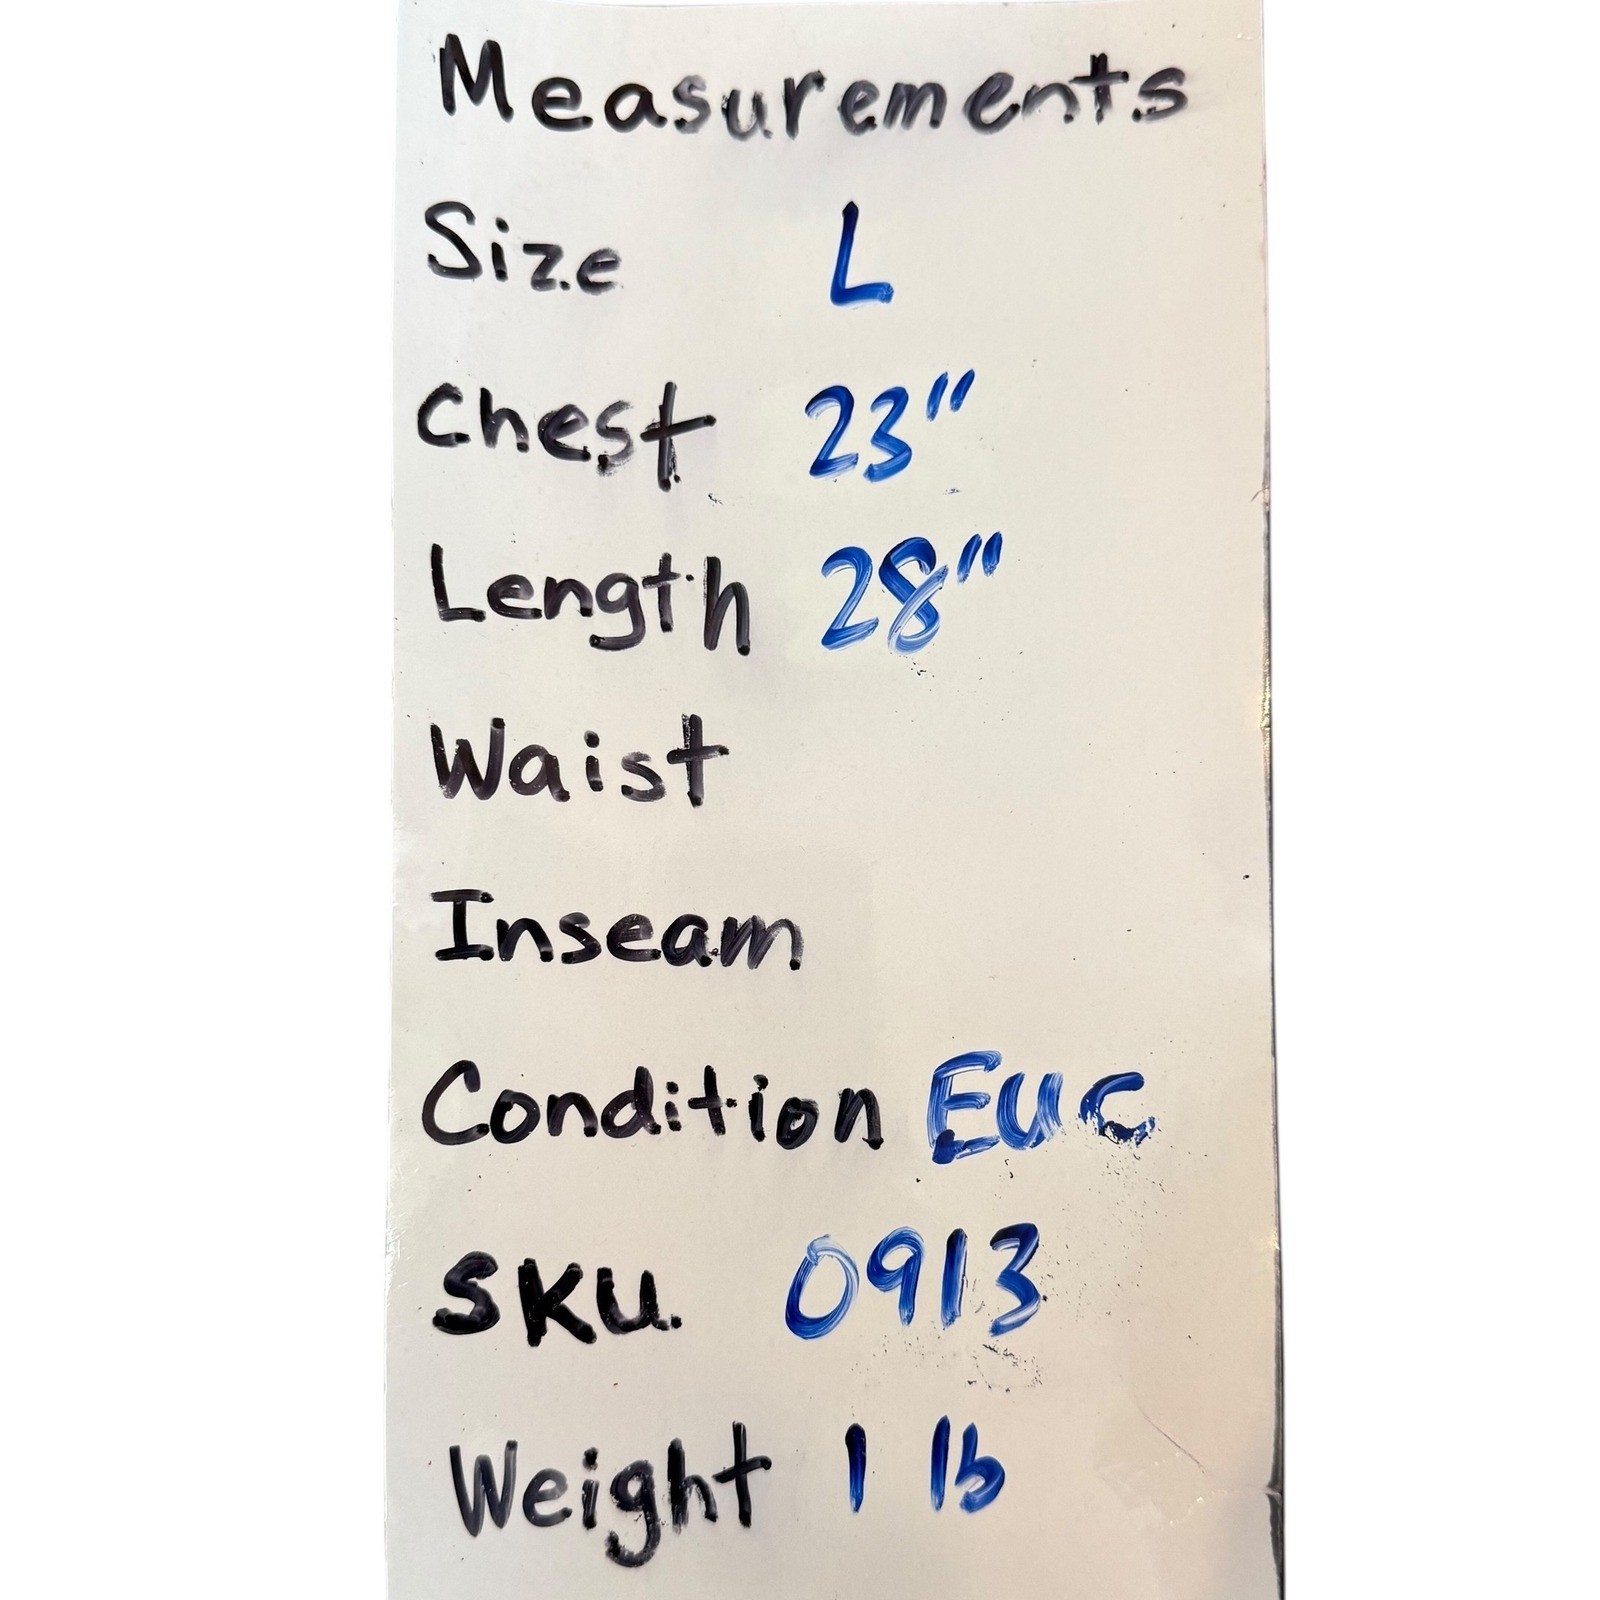 Measurements
Size L
Chest 23"
Length 28"
Waist
Inseam
Condition EUC
SKU 0913
Weight 1 lb